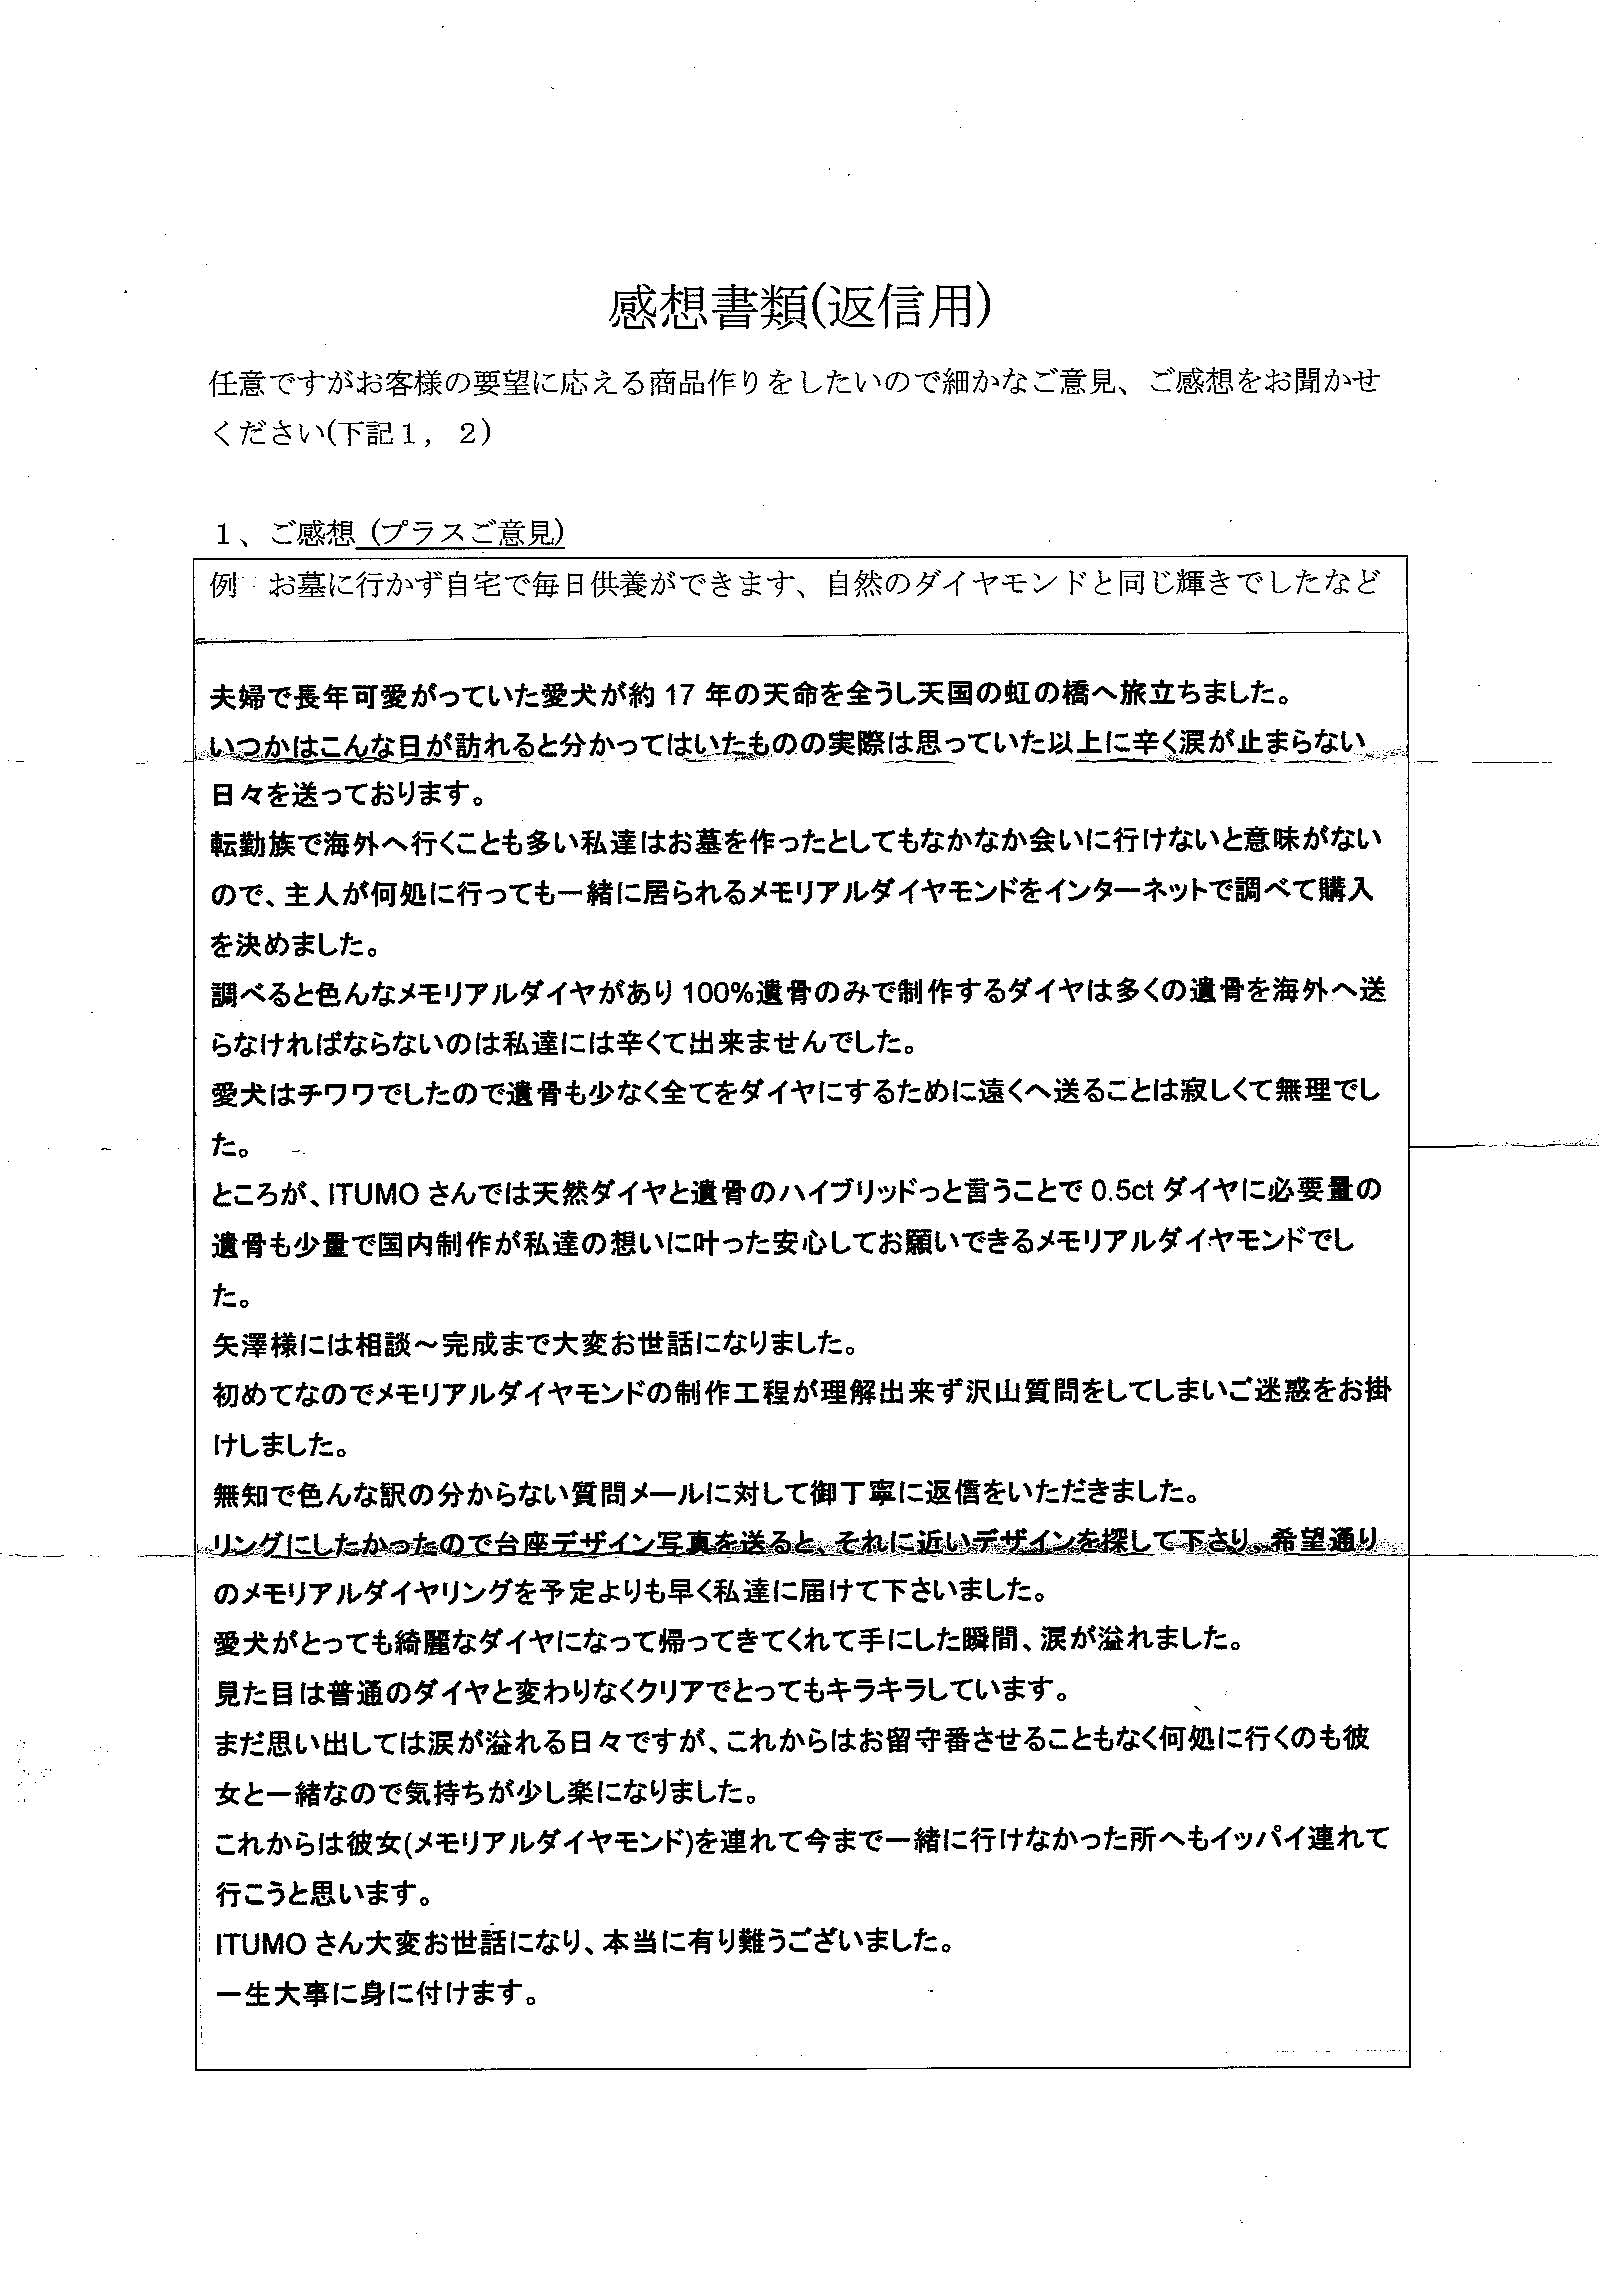 感想書類(返信用)
任意ですがお客様の要望に応える商品作りをしたいので細かなご意見、ご感想をお聞かせ
ください(下記１，２)
１、ご感想 (プラスご意見)
例 お墓に行かず自宅で毎日供養ができます、自然のダイヤモンドと同じ輝きでしたなど
夫婦で長年可愛がっていた愛犬が約 17 年の天命を全うし天国の虹の橋へ旅立ちました。
いつかはこんな日が訪れると分かってはいたものの実際は思っていた以上に辛く涙が止まらない
日々を送っております。
転勤族で海外へ行くことも多い私達はお墓を作ったとしてもなかなか会いに行けないと意味がない
ので、主人が何処に行っても一緒に居られるメモリアルダイヤモンドをインターネットで調べて購入
を決めました。
調べると色んなメモリアルダイヤがあり 100%遺骨のみで制作するダイヤは多くの遺骨を海外へ送
らなければならないのは私達には辛くて出来ませんでした。
愛犬はチワワでしたので遺骨も少なく全てをダイヤにするために遠くへ送ることは寂しくて無理でし
た。
ところが、ITUMO さんでは天然ダイヤと遺骨のハイブリッドっと言うことで 0.5ct ダイヤに必要量の
遺骨も少量で国内制作が私達の想いに叶った安心してお願いできるメモリアルダイヤモンドでし
た。
矢澤様には相談～完成まで大変お世話になりました。
初めてなのでメモリアルダイヤモンドの制作工程が理解出来ず沢山質問をしてしまいご迷惑をお掛
けしました。
無知で色んな訳の分からない質問メールに対して御丁寧に返信をいただきました。
リングにしたかったので台座デザイン写真を送ると、それに近いデザインを探して下さり。希望通り
のメモリアルダイヤリングを予定よりも早く私達に届けて下さいました。
愛犬がとっても綺麗なダイヤになって帰ってきてくれて手にした瞬間、涙が溢れました。
見た目は普通のダイヤと変わりなくクリアでとってもキラキラしています。
まだ思い出しては涙が溢れる日々ですが、これからはお留守番させることもなく何処に行くのも彼
女と一緒なので気持ちが少し楽になりました。
これからは彼女(メモリアルダイヤモンド)を連れて今まで一緒に行けなかった所へもイッパイ連れて
行こうと思います。
ITUMO さん大変お世話になり、本当に有り難うございました。
一生大事に身に付けます。